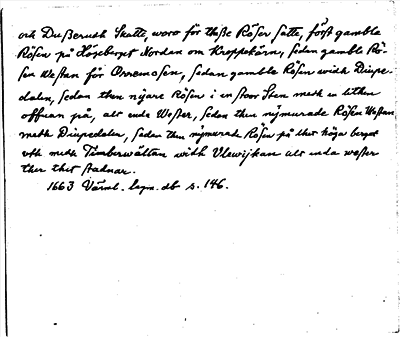 och Dußeruth Skatte, woro för theße Röser satte, först gambla
Rösen på Högeberget Nordan om Kroppekärn, sedan gamble Rö-
sen Westan för Orremosen, sedan gamble Rösen widh Diupe-
dalen, sedan then nyare Rösen i en stoor Sten medh en lithen
offuan på, alt unda Wäster, sedan then nijmurade Rösen Westan
medh Diupedalen, sedan then nijmurade Rösen på thet höga berget
uth medh Timberwältan widh Ulewijkan alt unda wäster
ther thet stadnar.
1663 Värml. lagm. db s. 146.